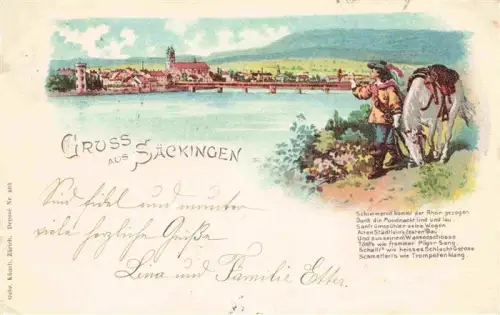 GRUSS
AUS SÄCKINGEN
Sind fidel und munter
viele herzliche Grüße
Lena und Familie Etter.
Schwimmend kommt der Rhein gezogen
Durch die Mondnacht und lau
Sanft umspühlen seine Wogen
Alten Städtleins Bau
Und aus seinem
Tönt's wie frommer Pilger Sang
Schallt's wie heisses Schlacht Getose
Schmettert's wie Trompetenklang.
Gebr. Künzli, Zürich. Dessin Nr.